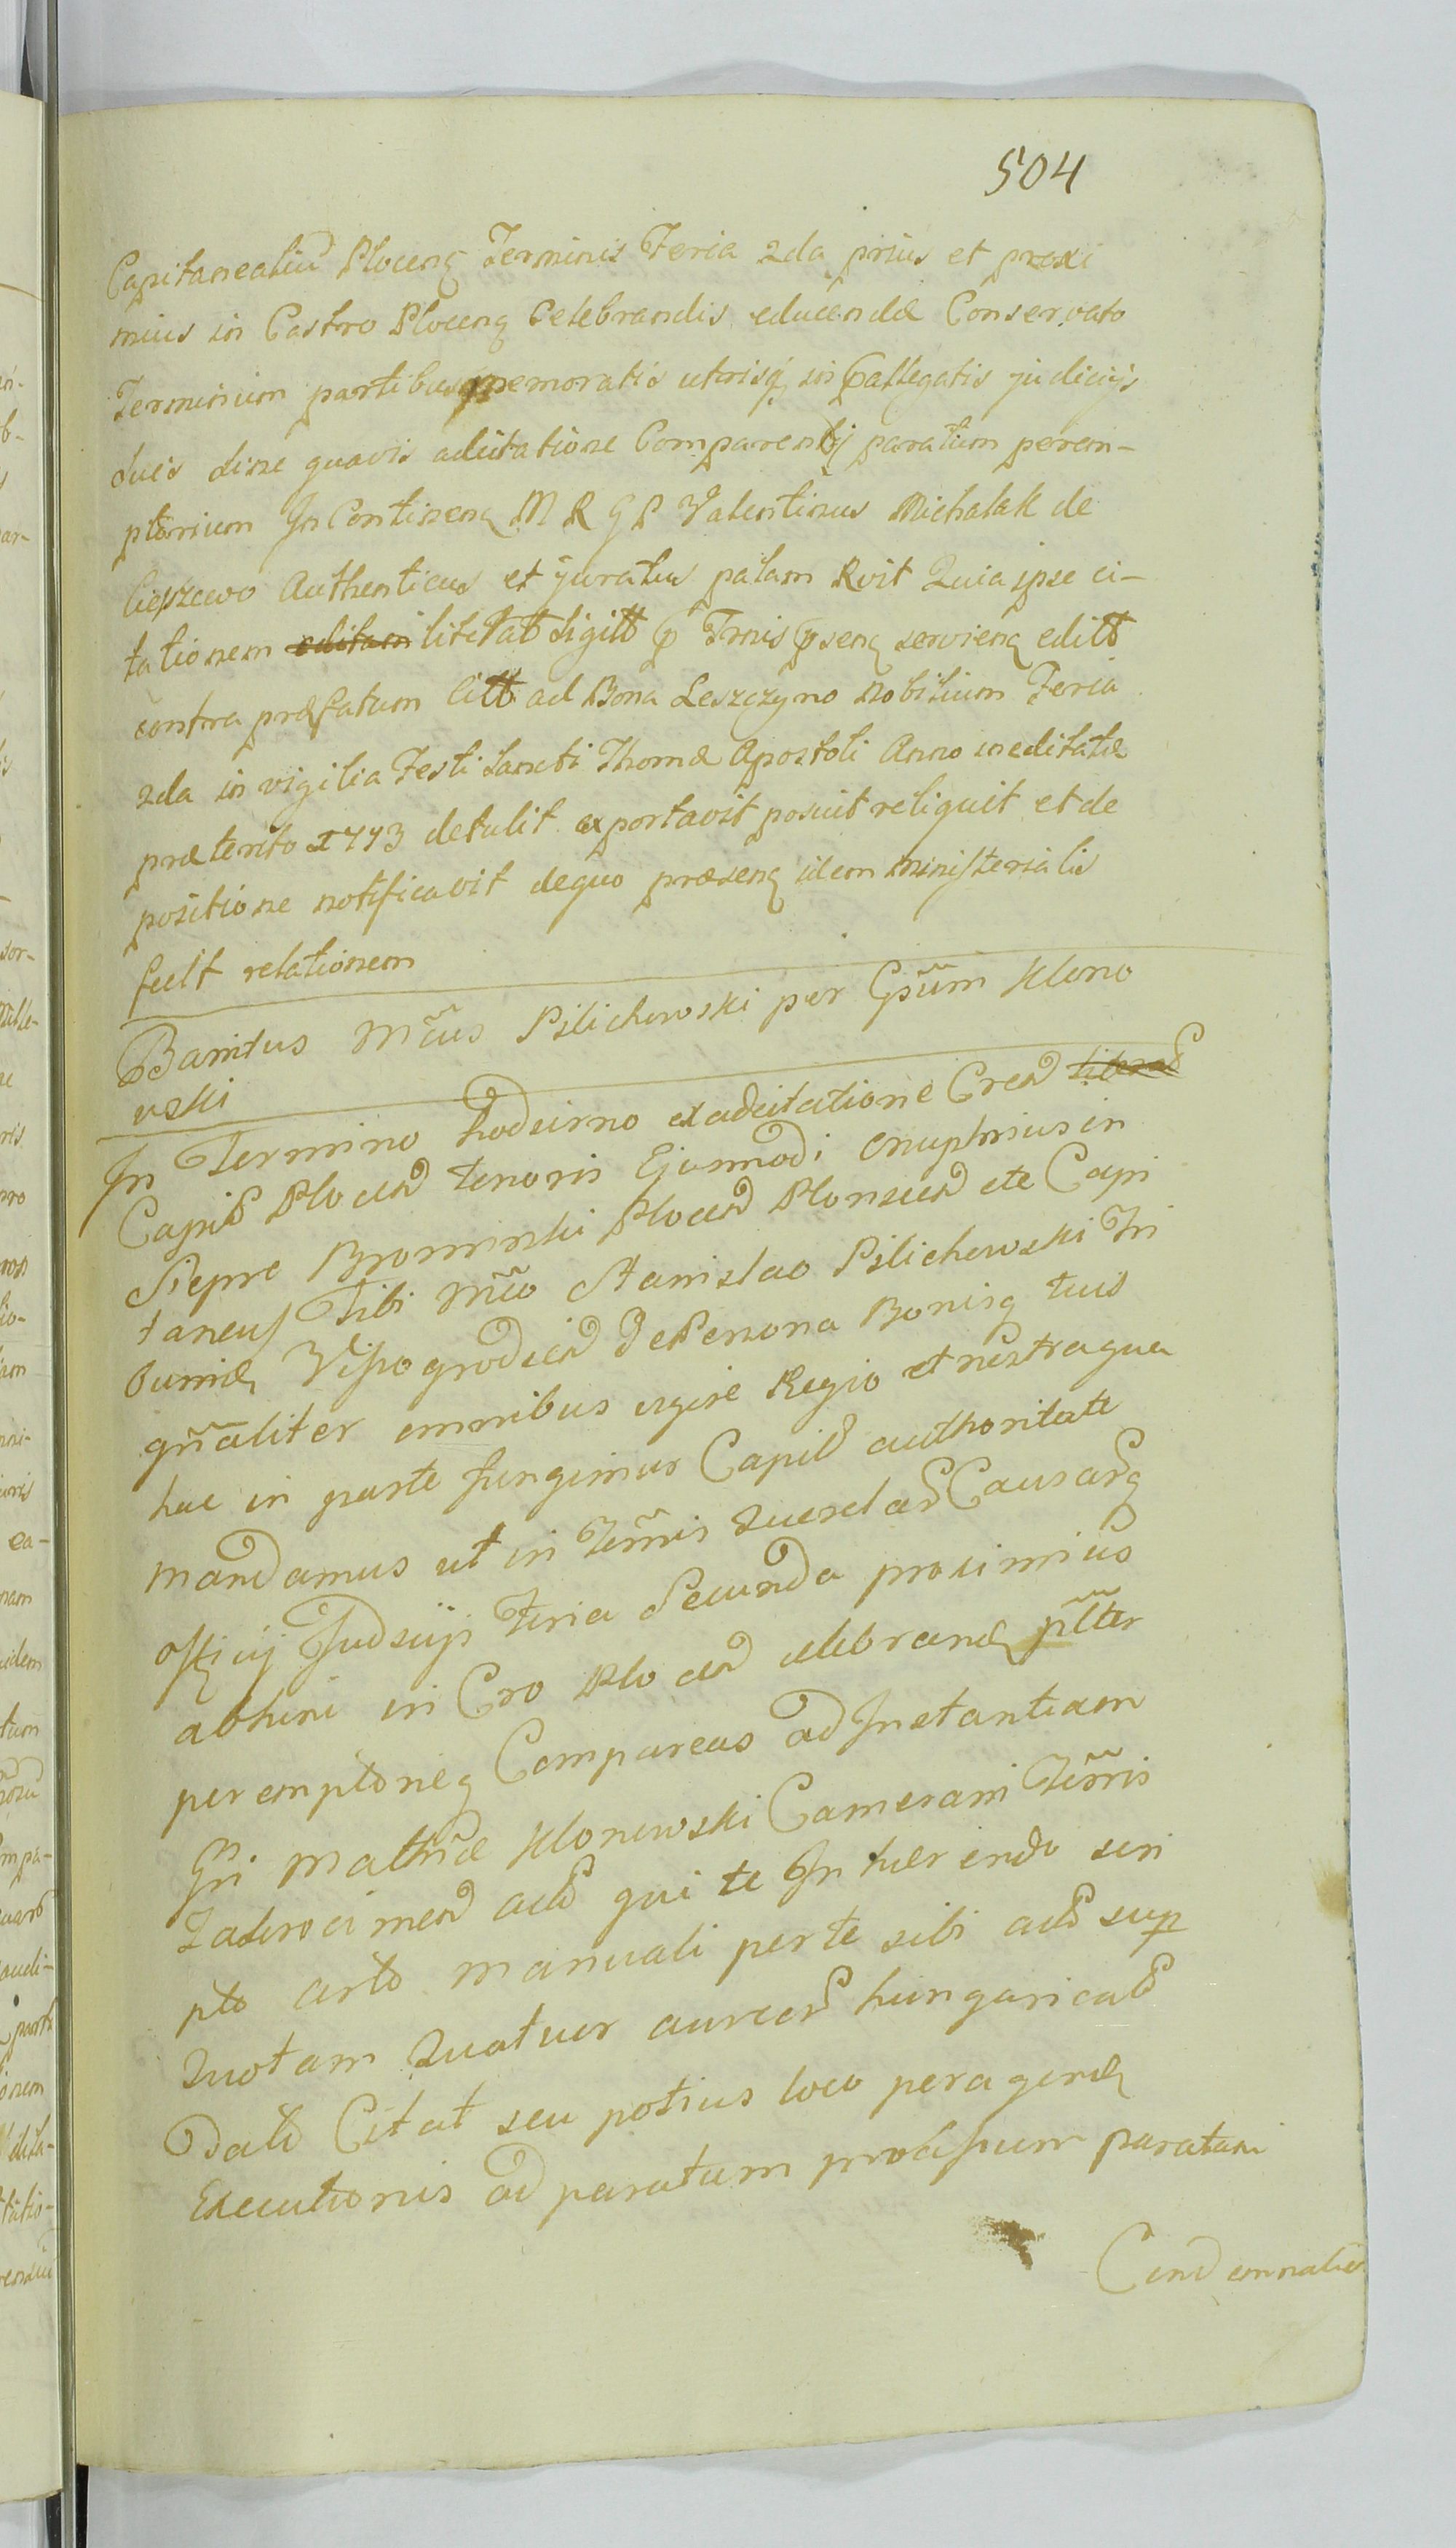 504
Capitanealiũ Plocenꝫ Terminis Feria 2da prius et proxi
mius in Castro Plocenꝫ Celebrandis educendæ Conservato
Terminum partibus memoratis utrisqꝫ in allegatis judicijs
suis sine quavis adcitatione Comparendj paratum perem-
ptorium In Continenꝫ M R G P Valentinus Michalak de
Cieszewo Authenticus et juratus palam Rvit Quia ipse ci-
tationem editam litt sigill p Trnis pseng servieng edit
contra præfatum Citt ad Bona Leszczyno Nobilium Feria
2da in vigilia Festi Sancti Thomæ Apostoli Anno ineditatæ
præterito 1773 detulit exportavit posuit reliquit et de
positione notificavit dequo præsenꝫ idem ministerialis
fecit relationem
Banitus Mcus Pilichowski per Gsum Klono
wski
In Termino hodierno ex adcitatione Cren
Capit Plocen tenoris Ejusmodi Onuphrius in
Siepre Bromirski Plocen Plonscen etc Capi
taneus Tibi Mco Stanislao Pilichowski Tri
buno Wyszogrodien De Persona Bonisq tuis
gnaliter omnibus vigore Regio et nostra qua
hac in parte fungimur Capit authoritate
mandamus ut in Trmis Querelar Causarq
Officij Judicij Feria Secunda proximius
abhinc in Cro Plocen celebranꝫ pltter
peremptorieꝫ Compareas ad Instantiam
Gsi Mathiæ Klonowski Camerarii Trrris
Zakrocimen act qui te Intuerendo scri
pto arto manuali per te sibi act sup
Quotam Quatuor aureor hungarical
Dati Citat seu potius loco peragenꝫ
Executionis ad paratum processum paratam
Condemnatio